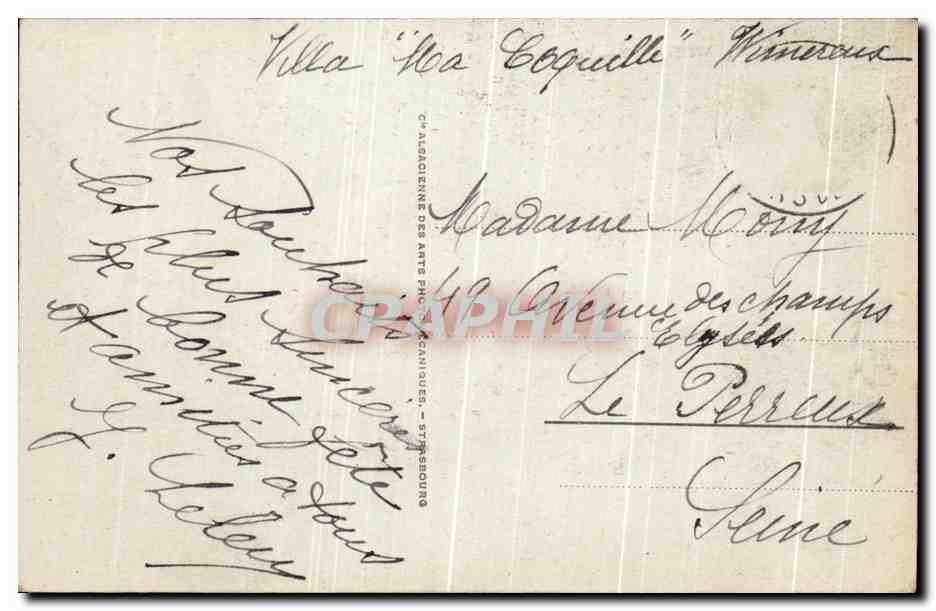 Villa "Ma Coquille" Wimereux
Nos souhaits sincères
les plus
de bonne fête
et amitiés à tous
G. Leleu
Cie ALSACIENNE DES ARTS PHOTOMÉCANIQUES. — STRASBOURG
CPAPHIL
Madame Mony
49 Avenue des champs
Elysées
Le Perreux
Seine